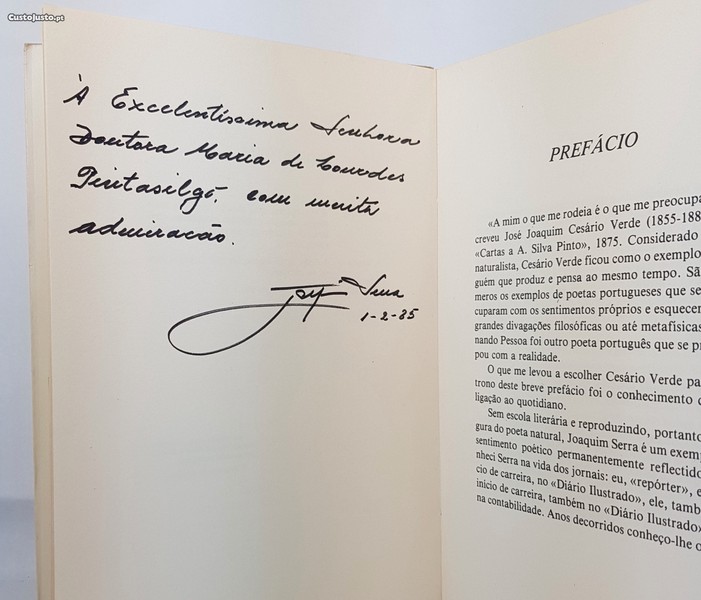 CustoJusto.pt
À Excelentíssima Senhora
Doutora Maria de Lourdes
Pintasilgo, com muita
admiração.
Serra
1-2-85
PREFÁCIO
«A mim o que me rodeia é o que me preocupa
creveu José Joaquim Cesário Verde (1855-188
«Cartas a A. Silva Pinto», 1875. Considerado
naturalista, Cesário Verde ficou como o exemplo
guém que produz e pensa ao mesmo tempo. Sã
meros os exemplos de poetas portugueses que se
cuparam com os sentimentos próprios e esquecer
grandes divagações filosóficas ou até metafísicas
nando Pessoa foi outro poeta português que se p
pou com a realidade.
O que me levou a escolher Cesário Verde pa
trono deste breve prefácio foi o conhecimento
ligação ao quotidiano.
Sem escola literária e reproduzindo, portanto
gura do poeta natural, Joaquim Serra é um exem
sentimento poético permanentemente reflectido
nheci Serra na vida dos jornais: eu, «repórter», e
cio de carreira, no «Diário Ilustrado», ele, tamb
início de carreira, também no «Diário Ilustrado»
na contabilidade. Anos decorridos conheço-lhe o